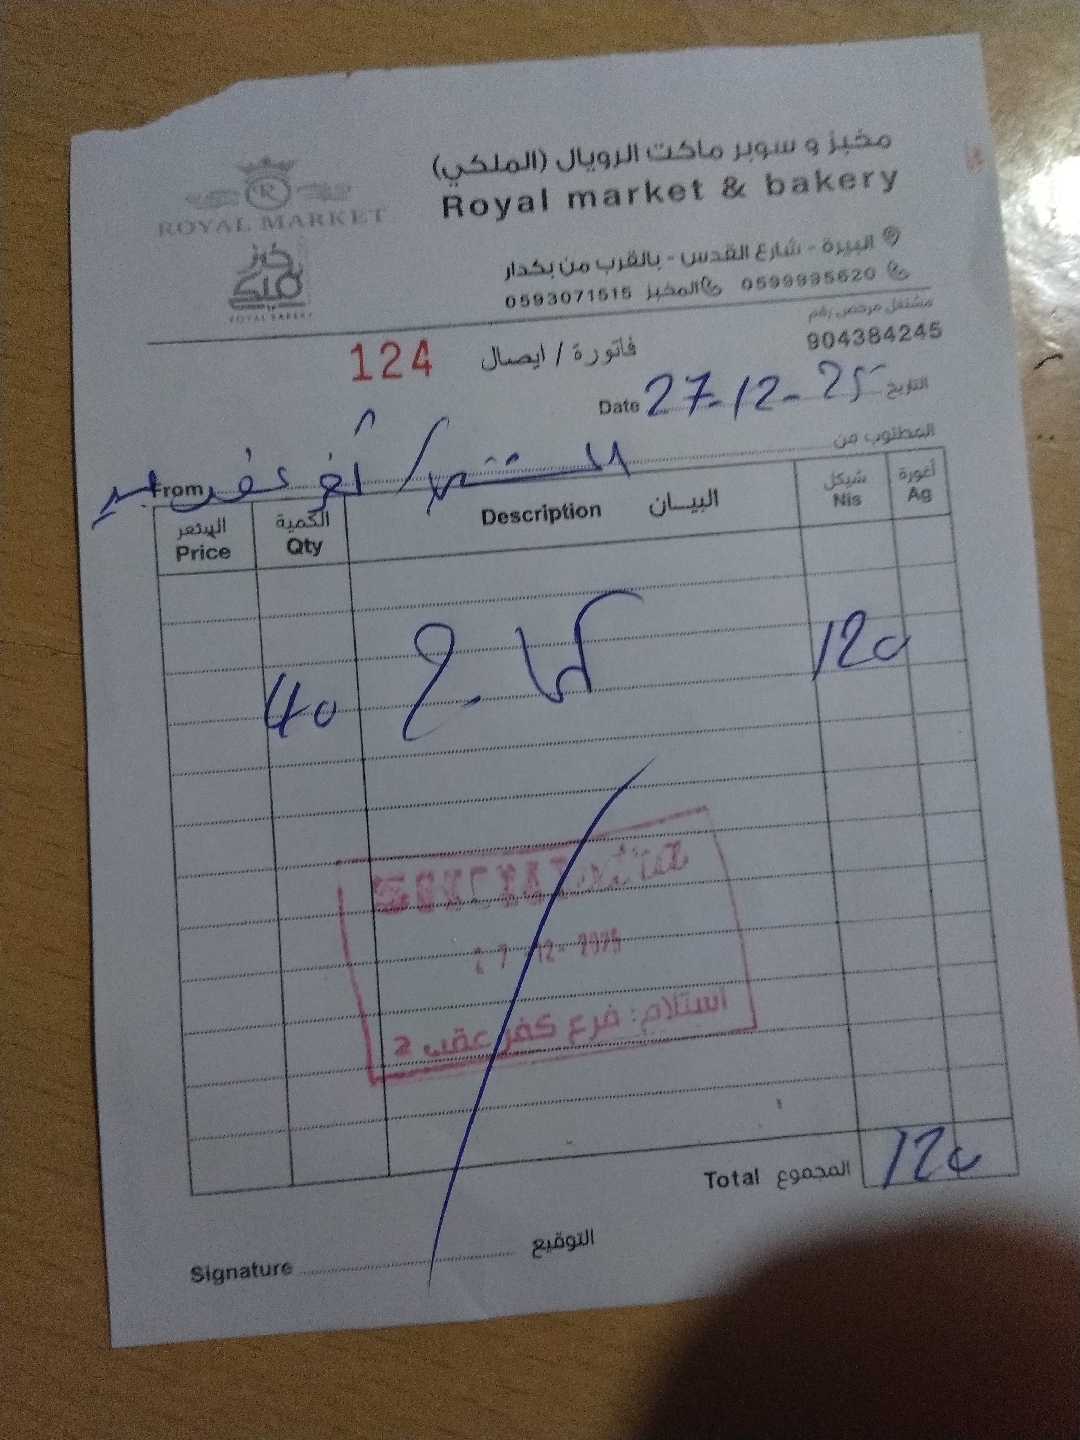 مخبز و سوبر ماكت الرويال (الملكي)
Royal market & bakery
ROYAL MARKET
خبز ملكي
ROYAL BAKERY
البيرة - شارع القدس - بالقرب من بكدار
0599995620 المخبز 0593071515
مشتغل مرخص رقم
904384245
فاتورة / ايصال 124
التاريخ 27-12-25 Date
المطلوب من
From
السعر الكمية البيان شيكل أغورة
Price Qty Description Nis Ag
40 120
27-12-2025
استلام: فرع كفر عقب 2
Total المجموع 120
Signature التوقيع